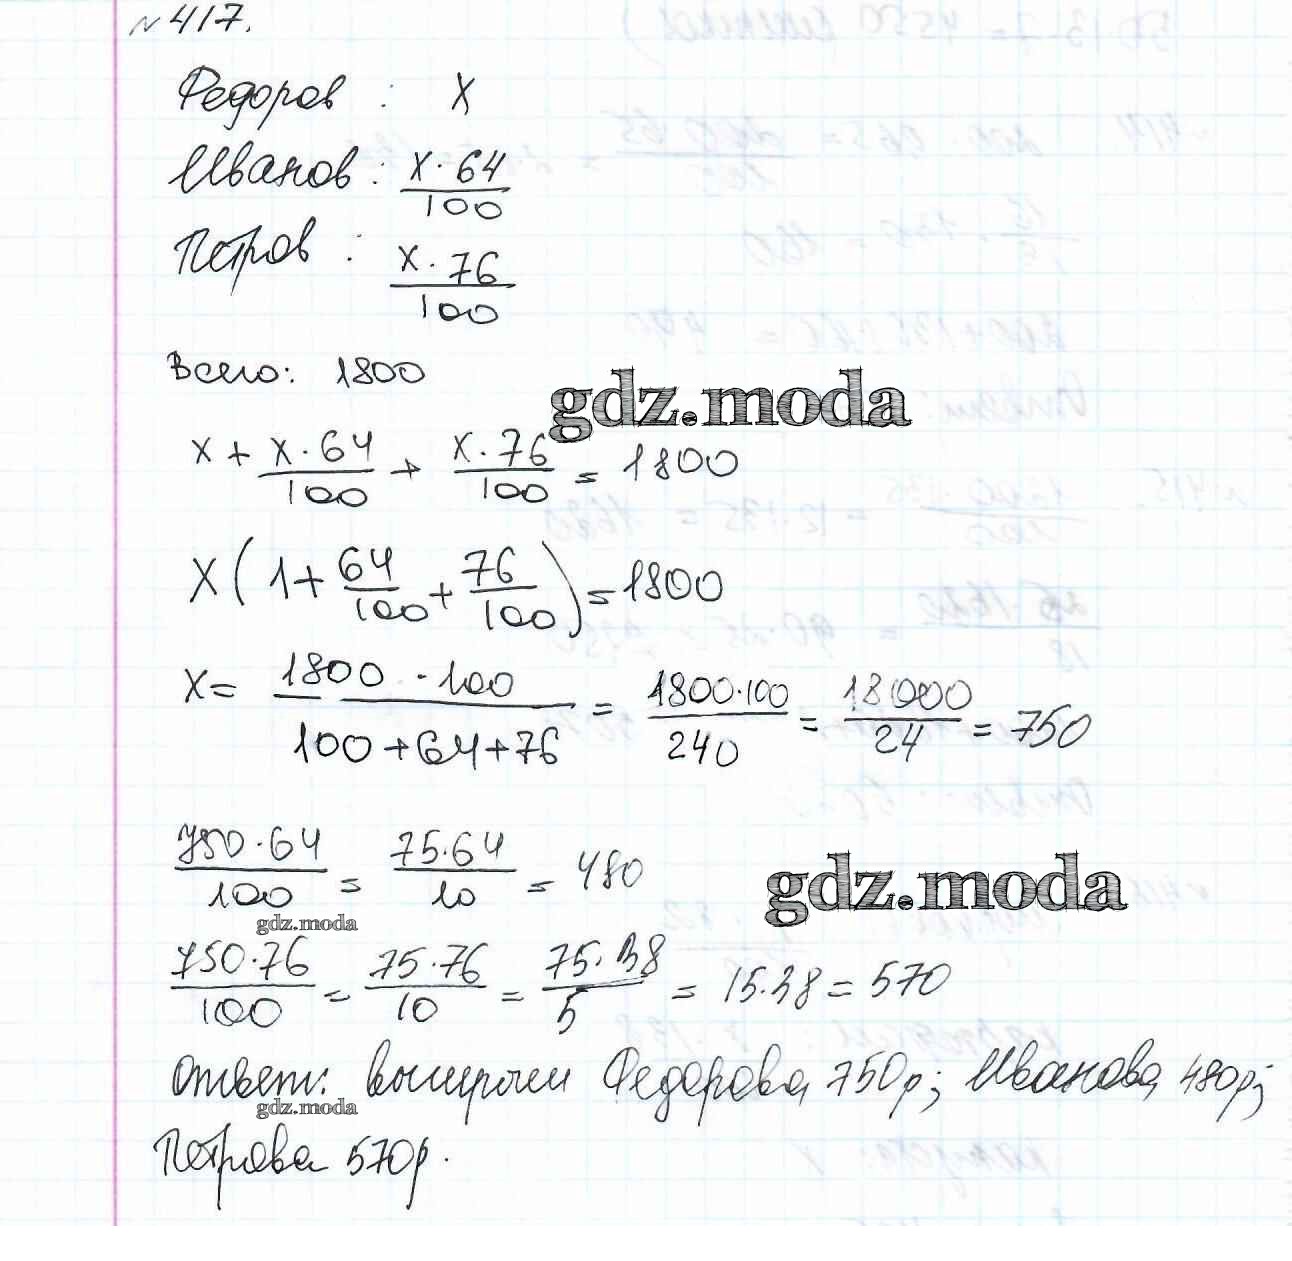 № 417.
Федоров : x
Иванов : x·64/100
Петров : x·76/100
Всего: 1800
gdz.moda
x + x·64/100 + x·76/100 = 1800
x(1 + 64/100 + 76/100) = 1800
x = 1800·100/100+64+76 = 1800·100/240 = 18000/24 = 750
750·64/100 = 75·64/10 = 480
gdz.moda
gdz.moda
750·76/100 = 75·76/10 = 75·38/5 = 15·38 = 570
Ответ: выигрыш Федорова 750р; Иванова 480р;
gdz.moda
Петрова 570р.